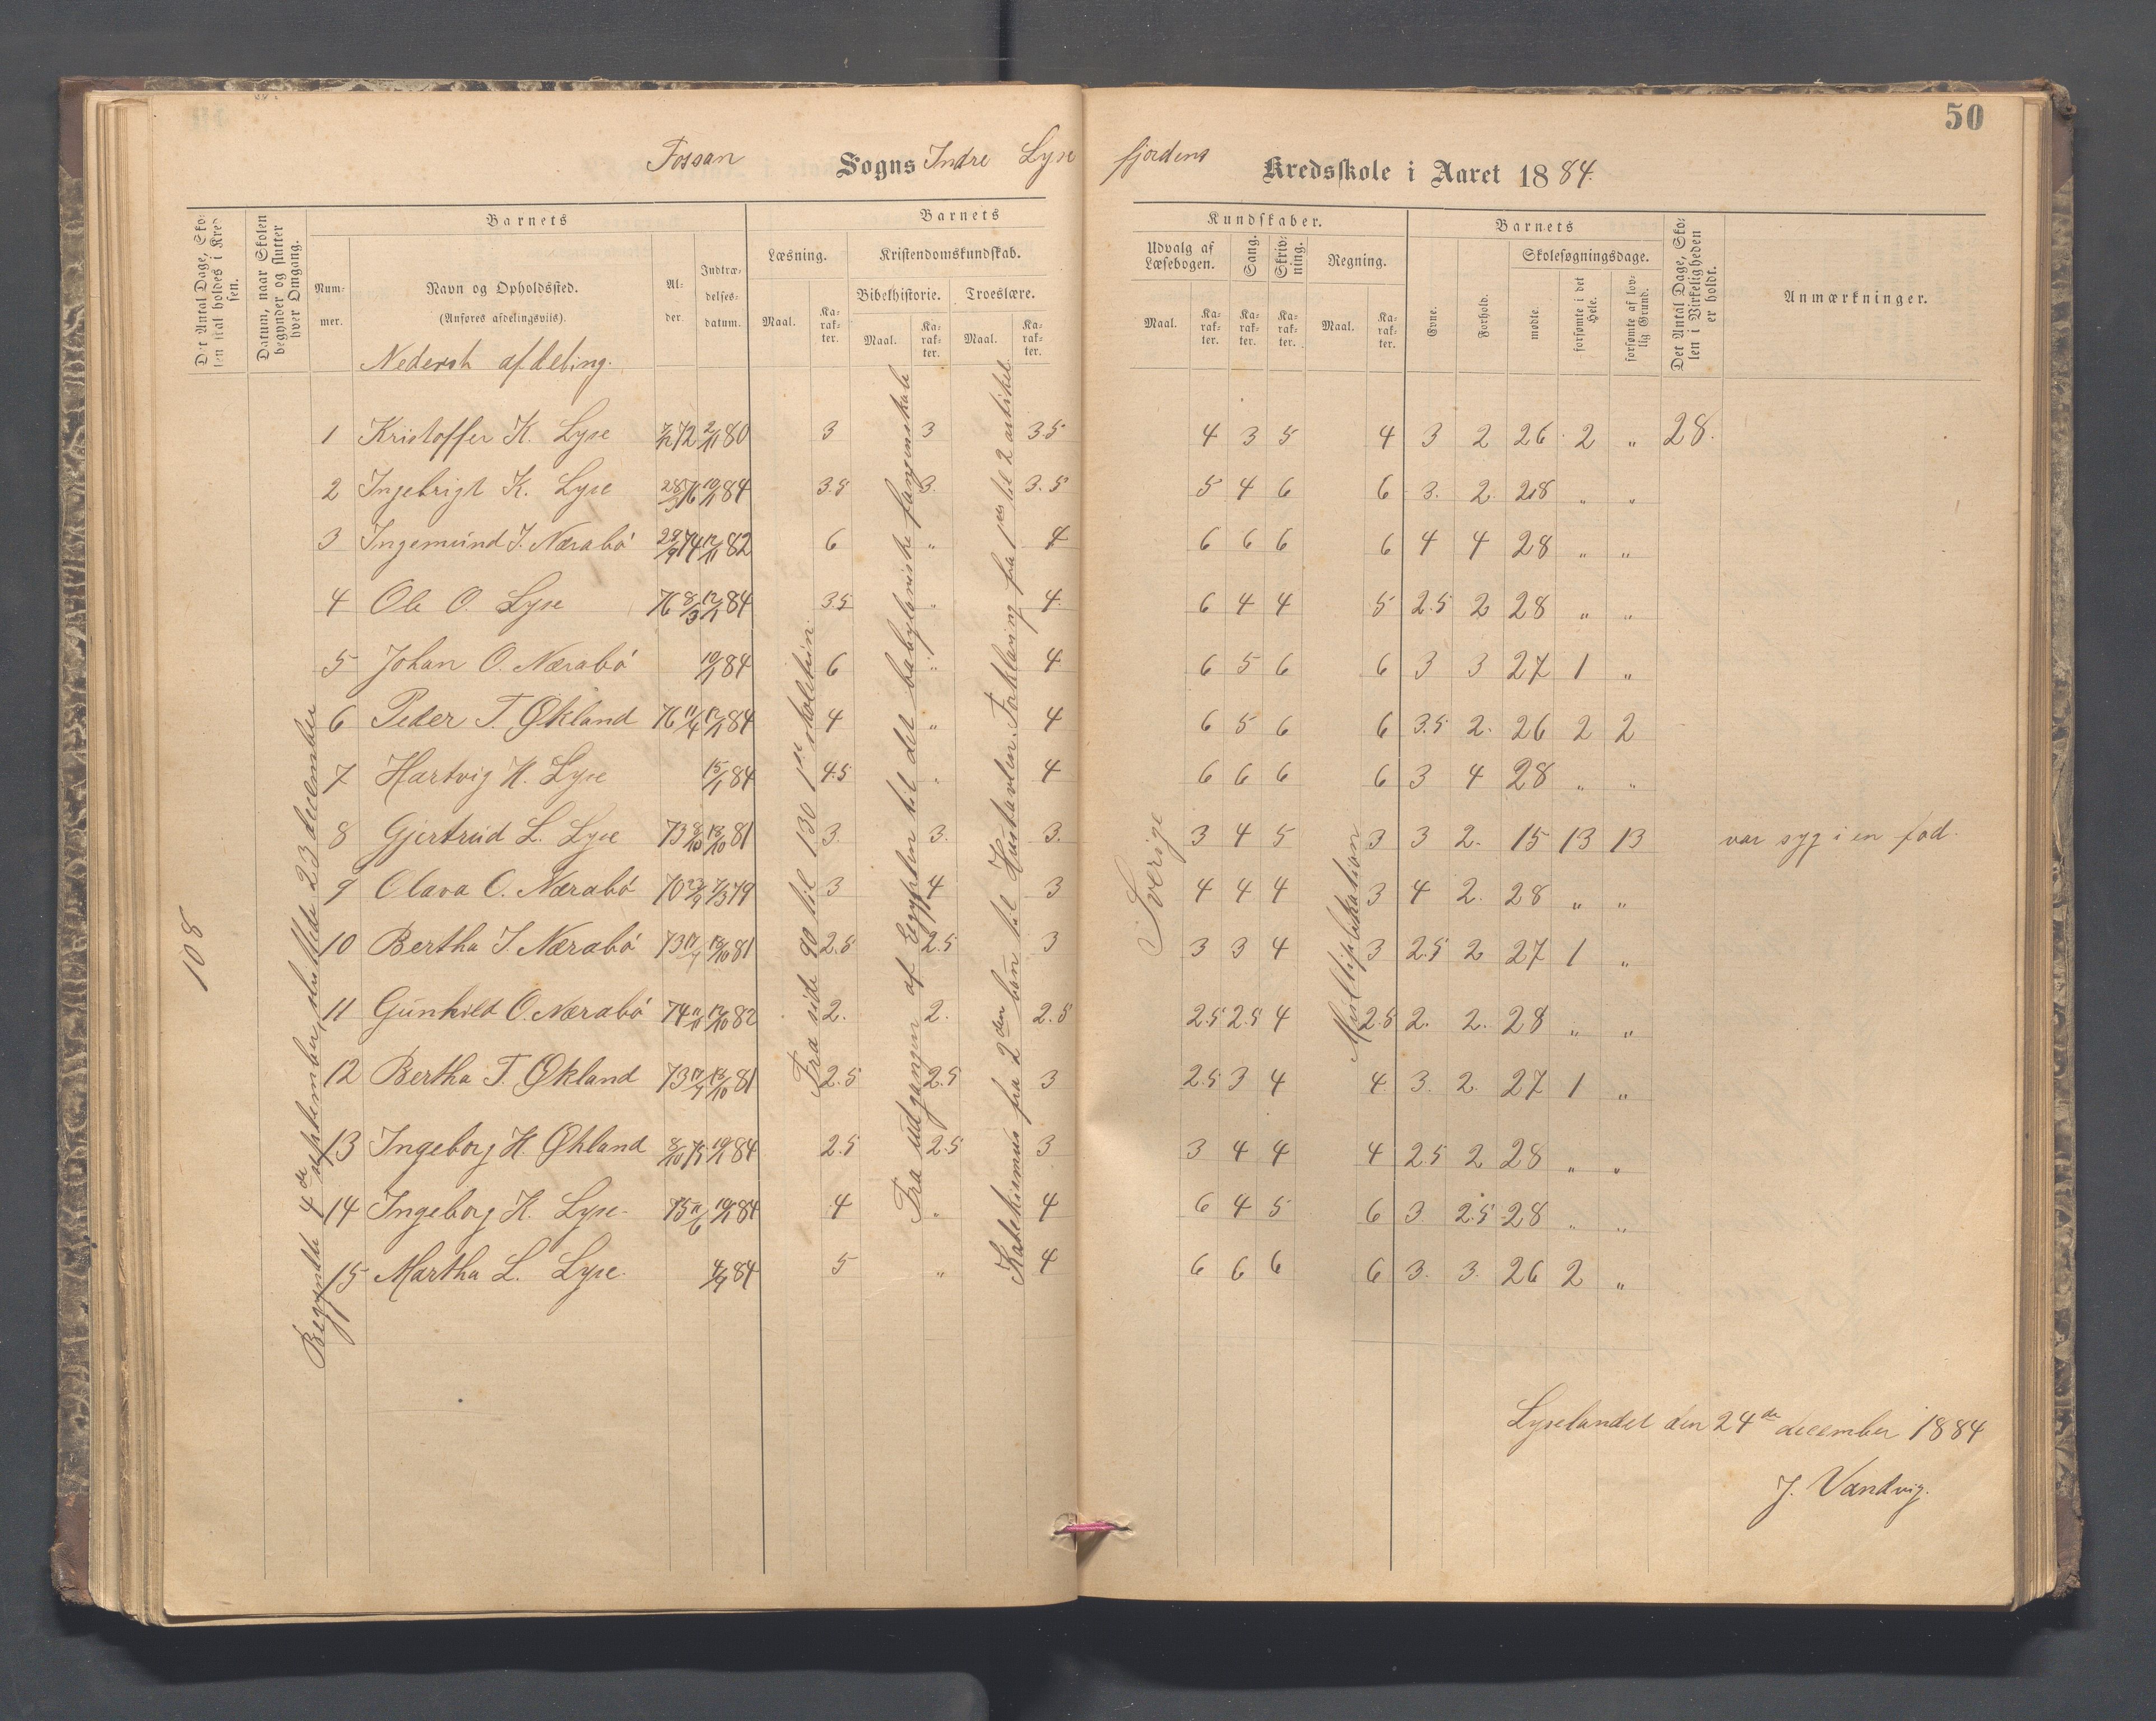 50
Fossan Sogns Indre Lyse fjordens Kredsskole i Aaret 1884.
Det Antal Dage, Skolen skal holdes i Kredsen.
Datum, naar Skolen begynder og slutter hver Omgang.
Barnets
Nummer.
Navn og Opholdssted.
(Anføres afdelingsviis).
Alder.
Indtrædelsesdatum.
Barnets
Læsning.
Maal.
Karakter.
Kristendomskundskab.
Bibelhistorie.
Maal.
Karakter.
Troeslære.
Maal.
Karakter.
Kundskaber.
Udvalg af Læsebogen.
Maal.
Karakter.
Sang.
Karakter.
Skrivning.
Karakter.
Regning.
Maal.
Karakter.
Barnets
Evne.
Forhold.
Skolesøgningsdage.
mødte.
forsømte i det Hele.
forsømte af lovlig Grund.
Det Antal Dage, Skolen i Virkeligheden er holdt.
Anmærkninger.
Nederste afdeling.
108
Begyndte 4de september, sluttede 23 december
Fra side 90 til 130 1ste skoletrin.
Fra udgangen af Egypten til det babyloniske fangenskab
Katekismus fra 2den bøn til Hustavlen. Forklaring fra 1ste til 2 artikel
Sverige
Multiplikation
1 Kristoffer K. Lyse 72 2/11 80 3 3 3.5 4 3 5 4 3 2 26 2 „ 28.
2 Ingebrigt K. Lyse 84 3.5 3. 3.5 5 4 6 6 3. 2. 28 „ „
3 Ingemund J. Nærabø 28/9 74 82 6 „ 4 6 6 6 6 4 4 28 „ „
4 Ole O. Lyse 76 8/3 84 3.5 „ 4. 6 4 4 5 2.5 2 28 „ „
5 Johan O. Nærabø 84 6 „ 4 6 5 6 6 3 3 27 1 „
6 Peder T. Økland 76 84 4 „ 4 6 5 6 6 3.5 2. 26 2 2
7 Hartvig H. Lyse 15/1 84 4.5 „ 4 6 6 6 6 3 4 28 „ „
8 Gjertrud L. Lyse 73 81 3. 3. 3. 3 4 5 3 3 2. 15 13 13 var syg i en fod.
9 Olava O. Nærabø 70 79 3 4 3 4 4 4 3 4 2. 28 „ „
10 Bertha J. Nærabø 73 81 2.5 2.5 3 3 3 4 3 2.5 2 27 1 „
11 Gunhild O. Nærabø 74 82 2. 2. 2.5 2.5 2.5 4 2.5 2. 2. 28 „ „
12 Bertha T. Økland 73 81 2.5 2.5 3 2.5 3 4 4 3. 2. 27 1 „
13 Ingeborg H. Økland 8/10 75 84 2.5 2.5 3 3 4 4 4 2.5 2 28 „ „
14 Ingeborg K. Lyse 75 84 4 „ 4 6 4 5 6 3 2.5 28 „ „
15 Martha L. Lyse. 4/9 84 5 „ 4 6 6 6 6 3. 3. 26 2 „
Lyselandet den 24de december 1884
J. Vandvig.